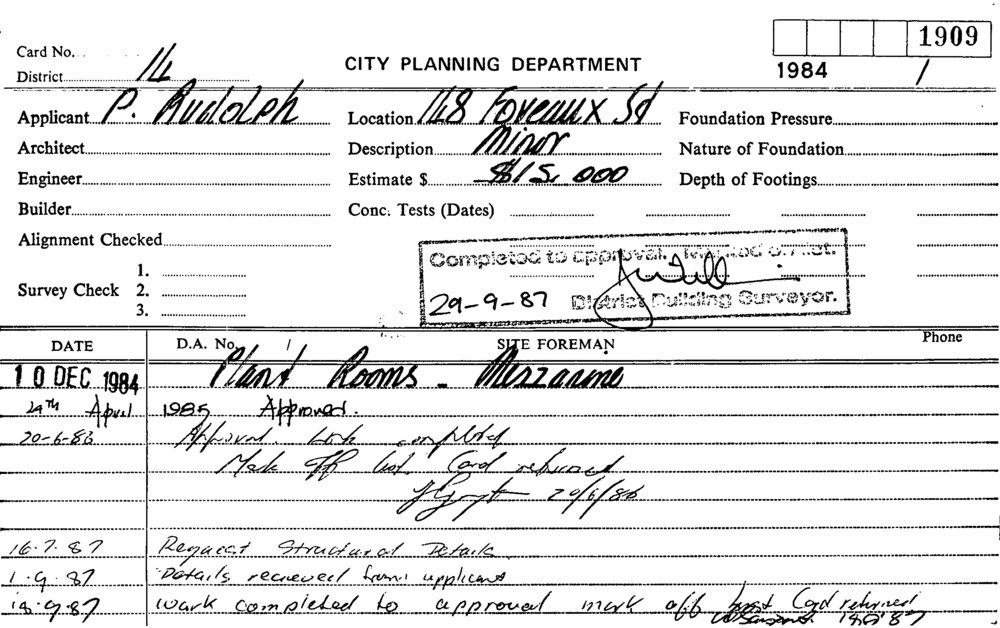 1909
Card No.
1984 /
District 14
CITY PLANNING DEPARTMENT
Applicant P. Rudolph
Location 148 Foveaux St
Foundation Pressure
Architect
Description Minor
Nature of Foundation
Engineer
Estimate $ $15,000
Depth of Footings
Builder
Conc. Tests (Dates)
Alignment Checked
Survey Check 1.
2.
3.
Completed to approval. Marked off list.
29-9-87 District Building Surveyor.
DATE D.A. No. / SITE FOREMAN Phone
10 DEC 1984 Plant Rooms - Mezzanine
24TH April 1985 Approved.
20-6-86 Approval. Work completed
Mark off list Card returned
20/6/86
16.7.87 Request Structural Details
1.9.87 Details recieved from applicant
18.9.87 work completed to approval mark off list Card returned